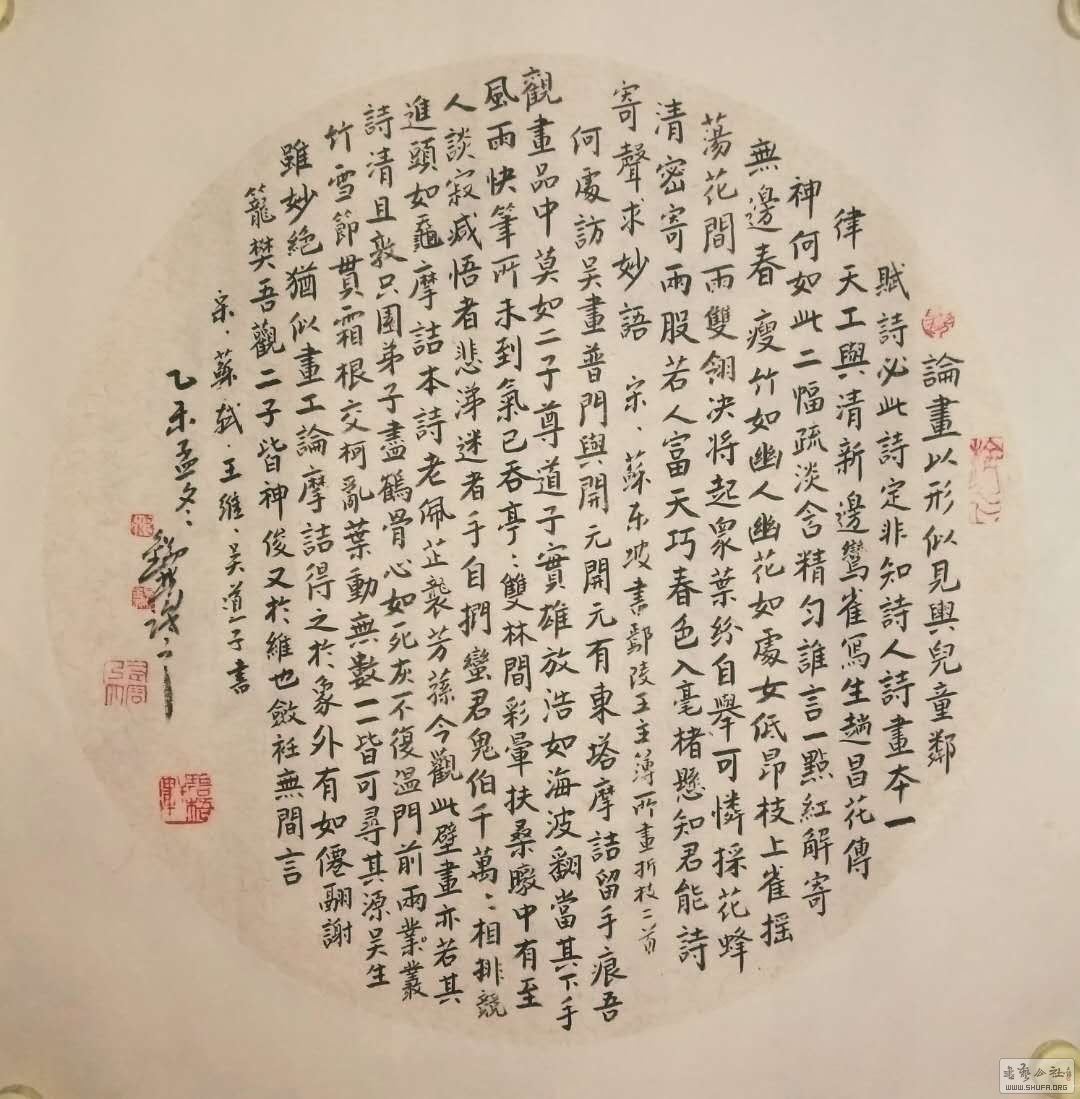 論畫以形似見與兒童鄰
賦詩必此詩定非知詩人詩畫本一
律天工與清新邊鸞雀寫生趙昌花傳
神何如此二幅疏淡含精勻誰言一點紅解寄
無邊春瘦竹如幽人幽花如處女低昂枝上雀搖
蕩花間雨雙翎決將起眾葉紛自舉可憐採花蜂
清密寄兩股若人富天巧春色入毫楮懸知君能詩
寄聲求妙語 宋、蘇東坡書鄢陵王主簿所畫折枝二首
何處訪吳畫普門與開元開元有東塔摩詰留手痕吾
觀畫品中莫如二子尊道子實雄放浩如海波翻當其下手
風雨快筆所未到氣已吞亭：雙林間彩暈扶桑暾中有至
人談寂滅悟者悲涕迷者手自捫蠻君鬼伯千萬：相排競
進頭如黿摩詰本詩老佩芷襲芳蓀今觀此壁畫亦若其
詩清且敦只園弟子盡鶴骨心如死灰不復溫門前兩業叢
竹雪節貫霜根交柯亂葉動無數一一皆可尋其源吳生
雖妙絕猶似畫工論摩詰得之於象外有如僊翮謝
籠樊吾觀二子皆神俊又於維也斂衽無間言
宋．蘇軾．王維．吳道子書
乙未孟冬
WWW.SHUFA.ORG